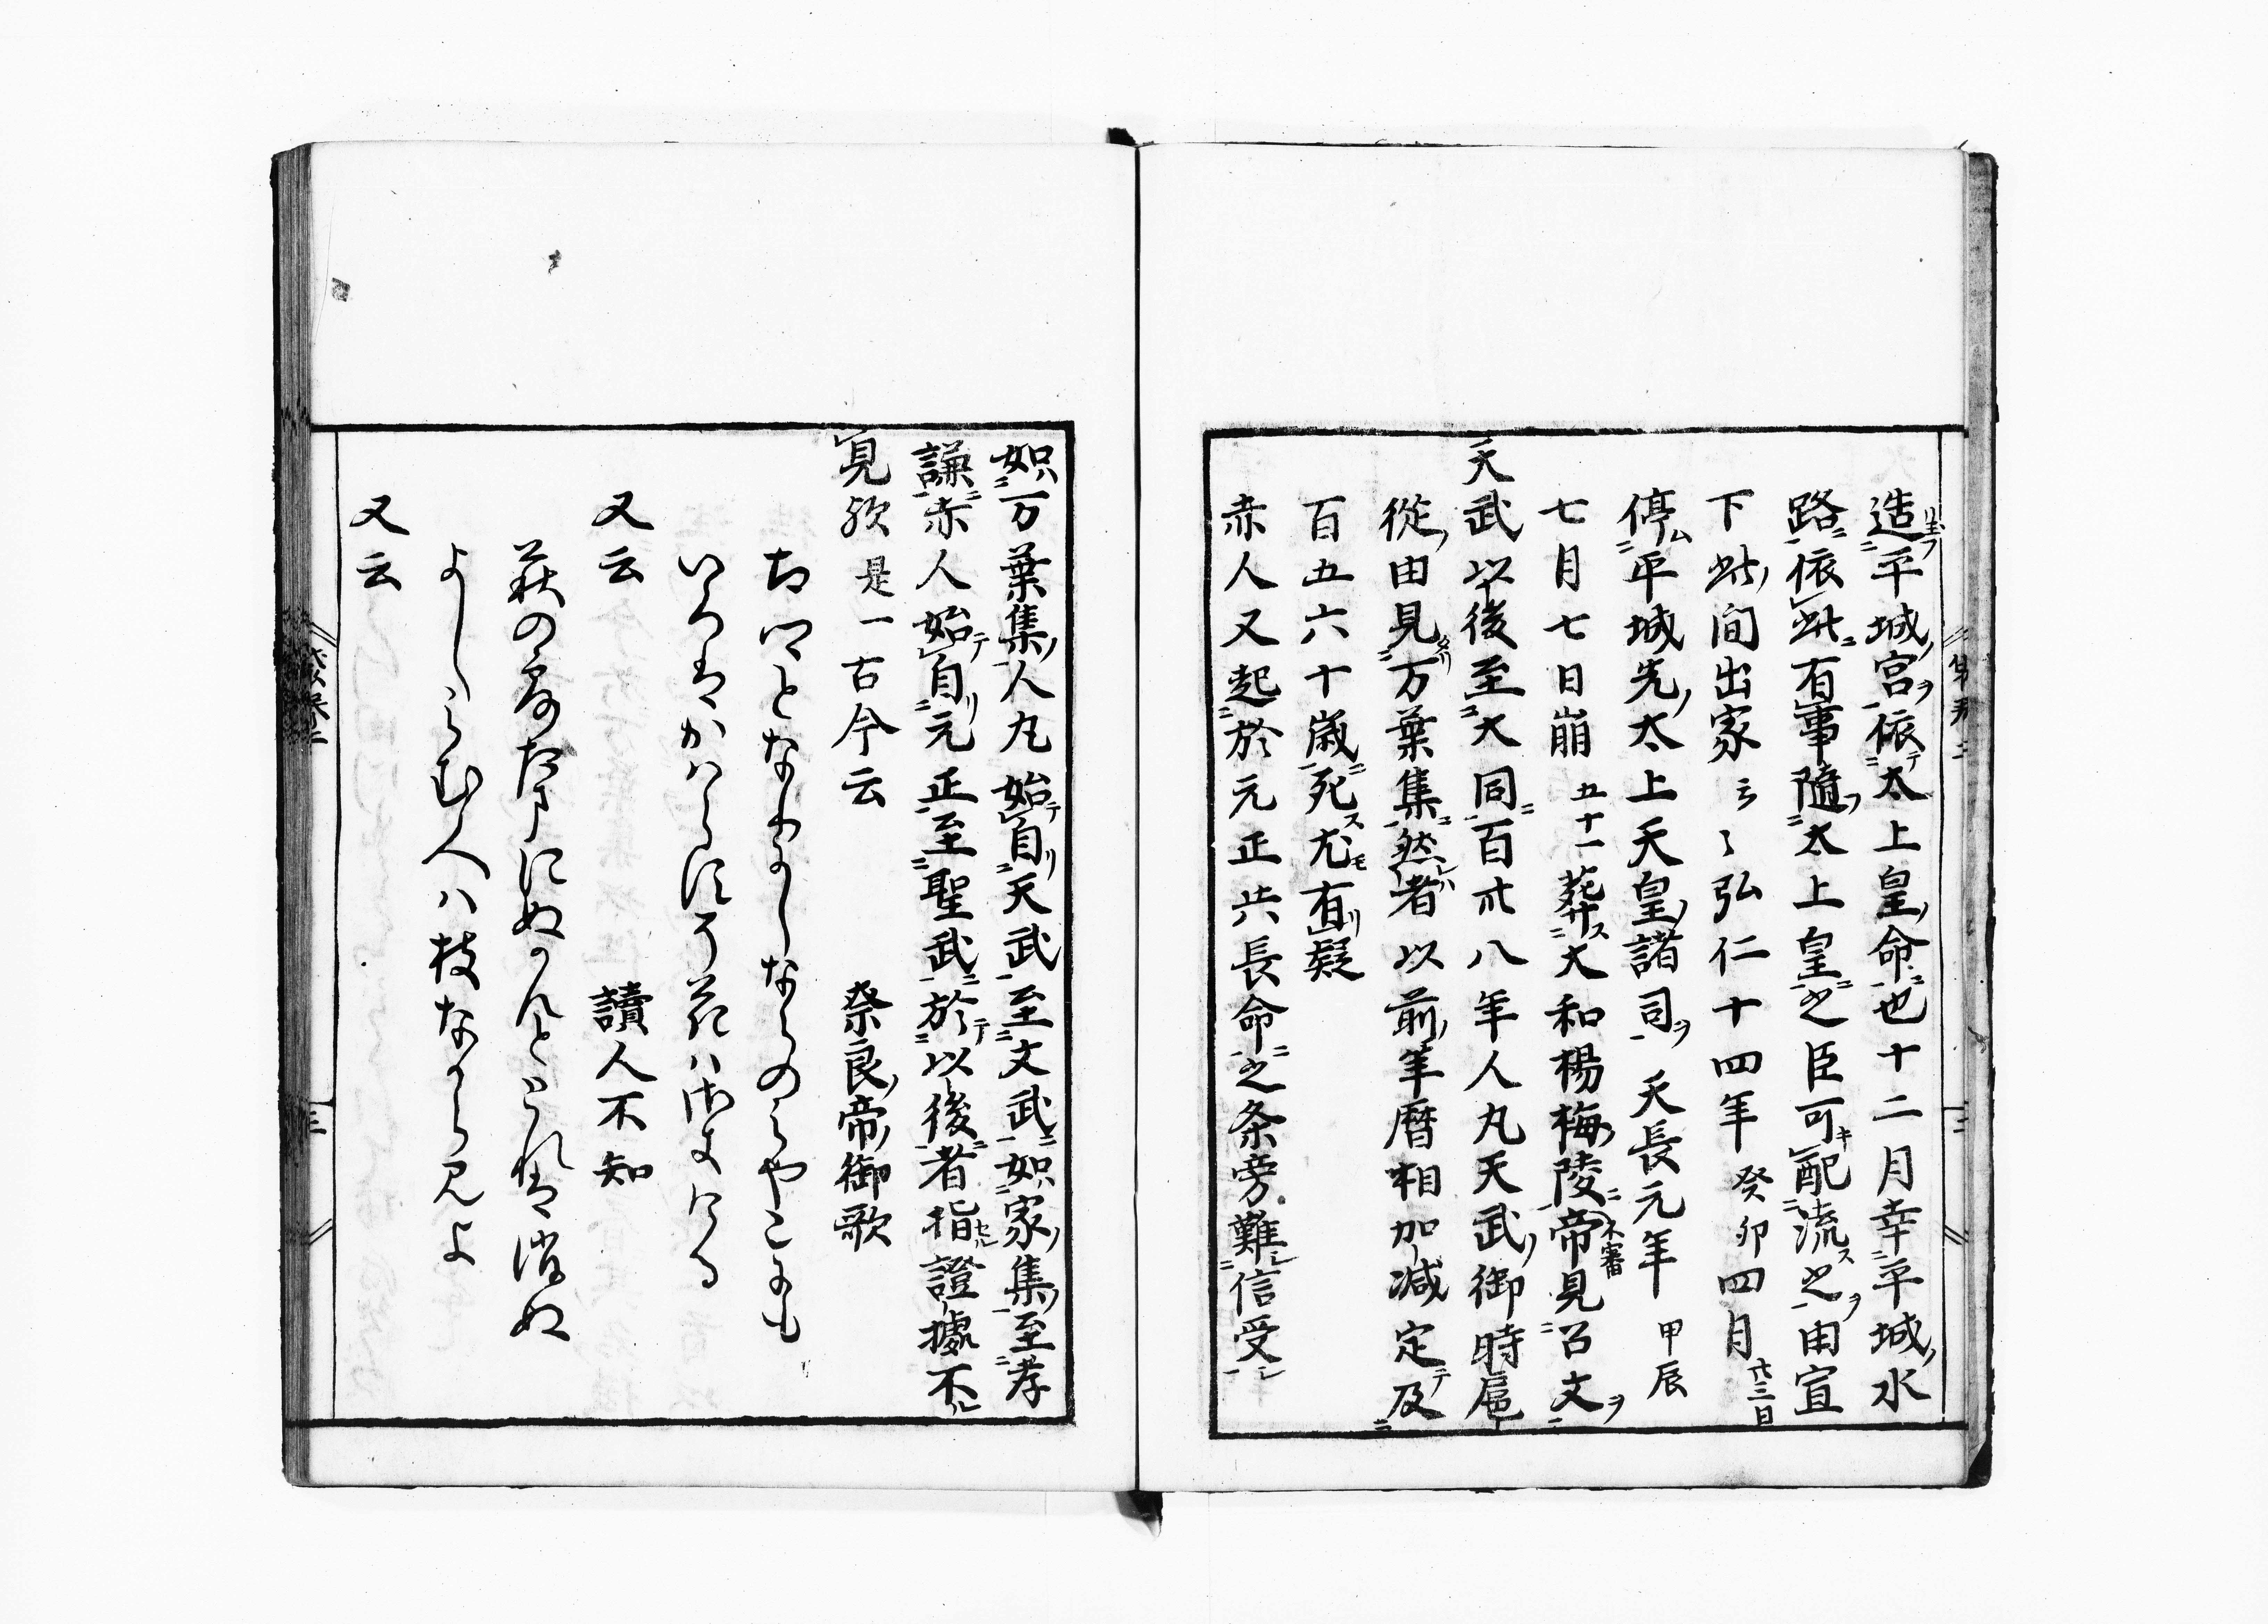 造平城宮依太上皇命也十二月幸平城水
路依此有事随太上皇之臣可配流之由宣
下此間出家云々弘仁十四年癸卯四月廿三日
停平城先太上天皇諸司天長元年甲辰
七月七日崩五十一葬大和楊梅陵帝不審見召文
天武以後至大同百廿八年人丸天武御時扈
從由見万葉集然者以前年暦相加减定及
百五六十歳死尤有疑
赤人又起於元正共長命之条旁難信受
如万葉集人丸始自天武至文武如家集至孝
謙赤人始自元正至聖武於以後者指證據不
見欤是一古今云 奈良帝御歌
ふるさととなりにしならのみやこにも
いろはかはらす花はさきけり
又云 讀人不知
萩の露たまにぬかんととれは消ぬ
よしみむ人は枝なから見よ
又云